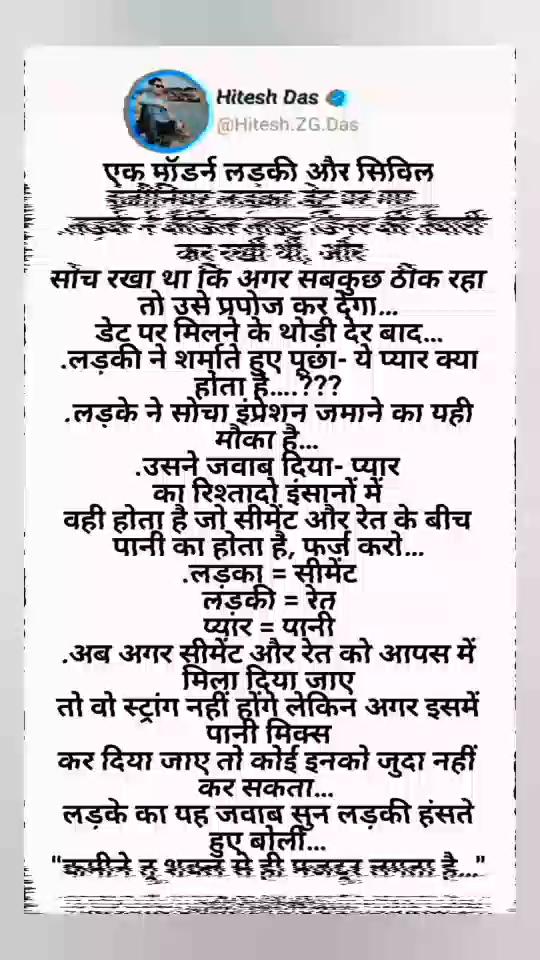 Hitesh Das
@Hitesh.ZG.Das
एक मॉडर्न लड़की और सिविल
इंजीनियर लड़का डेट पर गए
कर रखी थी, और
सोच रखा था कि अगर सबकुछ ठीक रहा
तो उसे प्रपोज कर देगा...
डेट पर मिलने के थोड़ी देर बाद...
.लड़की ने शर्माते हुए पूछा- ये प्यार क्या
होता है....???
.लड़के ने सोचा इंप्रेशन जमाने का यही
मौका है...
.उसने जवाब दिया- प्यार
का रिश्तादो इंसानों में
वही होता है जो सीमेंट और रेत के बीच
पानी का होता है, फर्ज करो...
.लड़का = सीमेंट
लड़की = रेत
प्यार = पानी
.अब अगर सीमेंट और रेत को आपस में
मिला दिया जाए
तो वो स्ट्रांग नहीं होंगे लेकिन अगर इसमें
पानी मिक्स
कर दिया जाए तो कोई इनको जुदा नहीं
कर सकता...
लड़के का यह जवाब सुन लड़की हंसते
हुए बोली...
"कमीने तू शक्ल से ही मजदूर लगता है..."